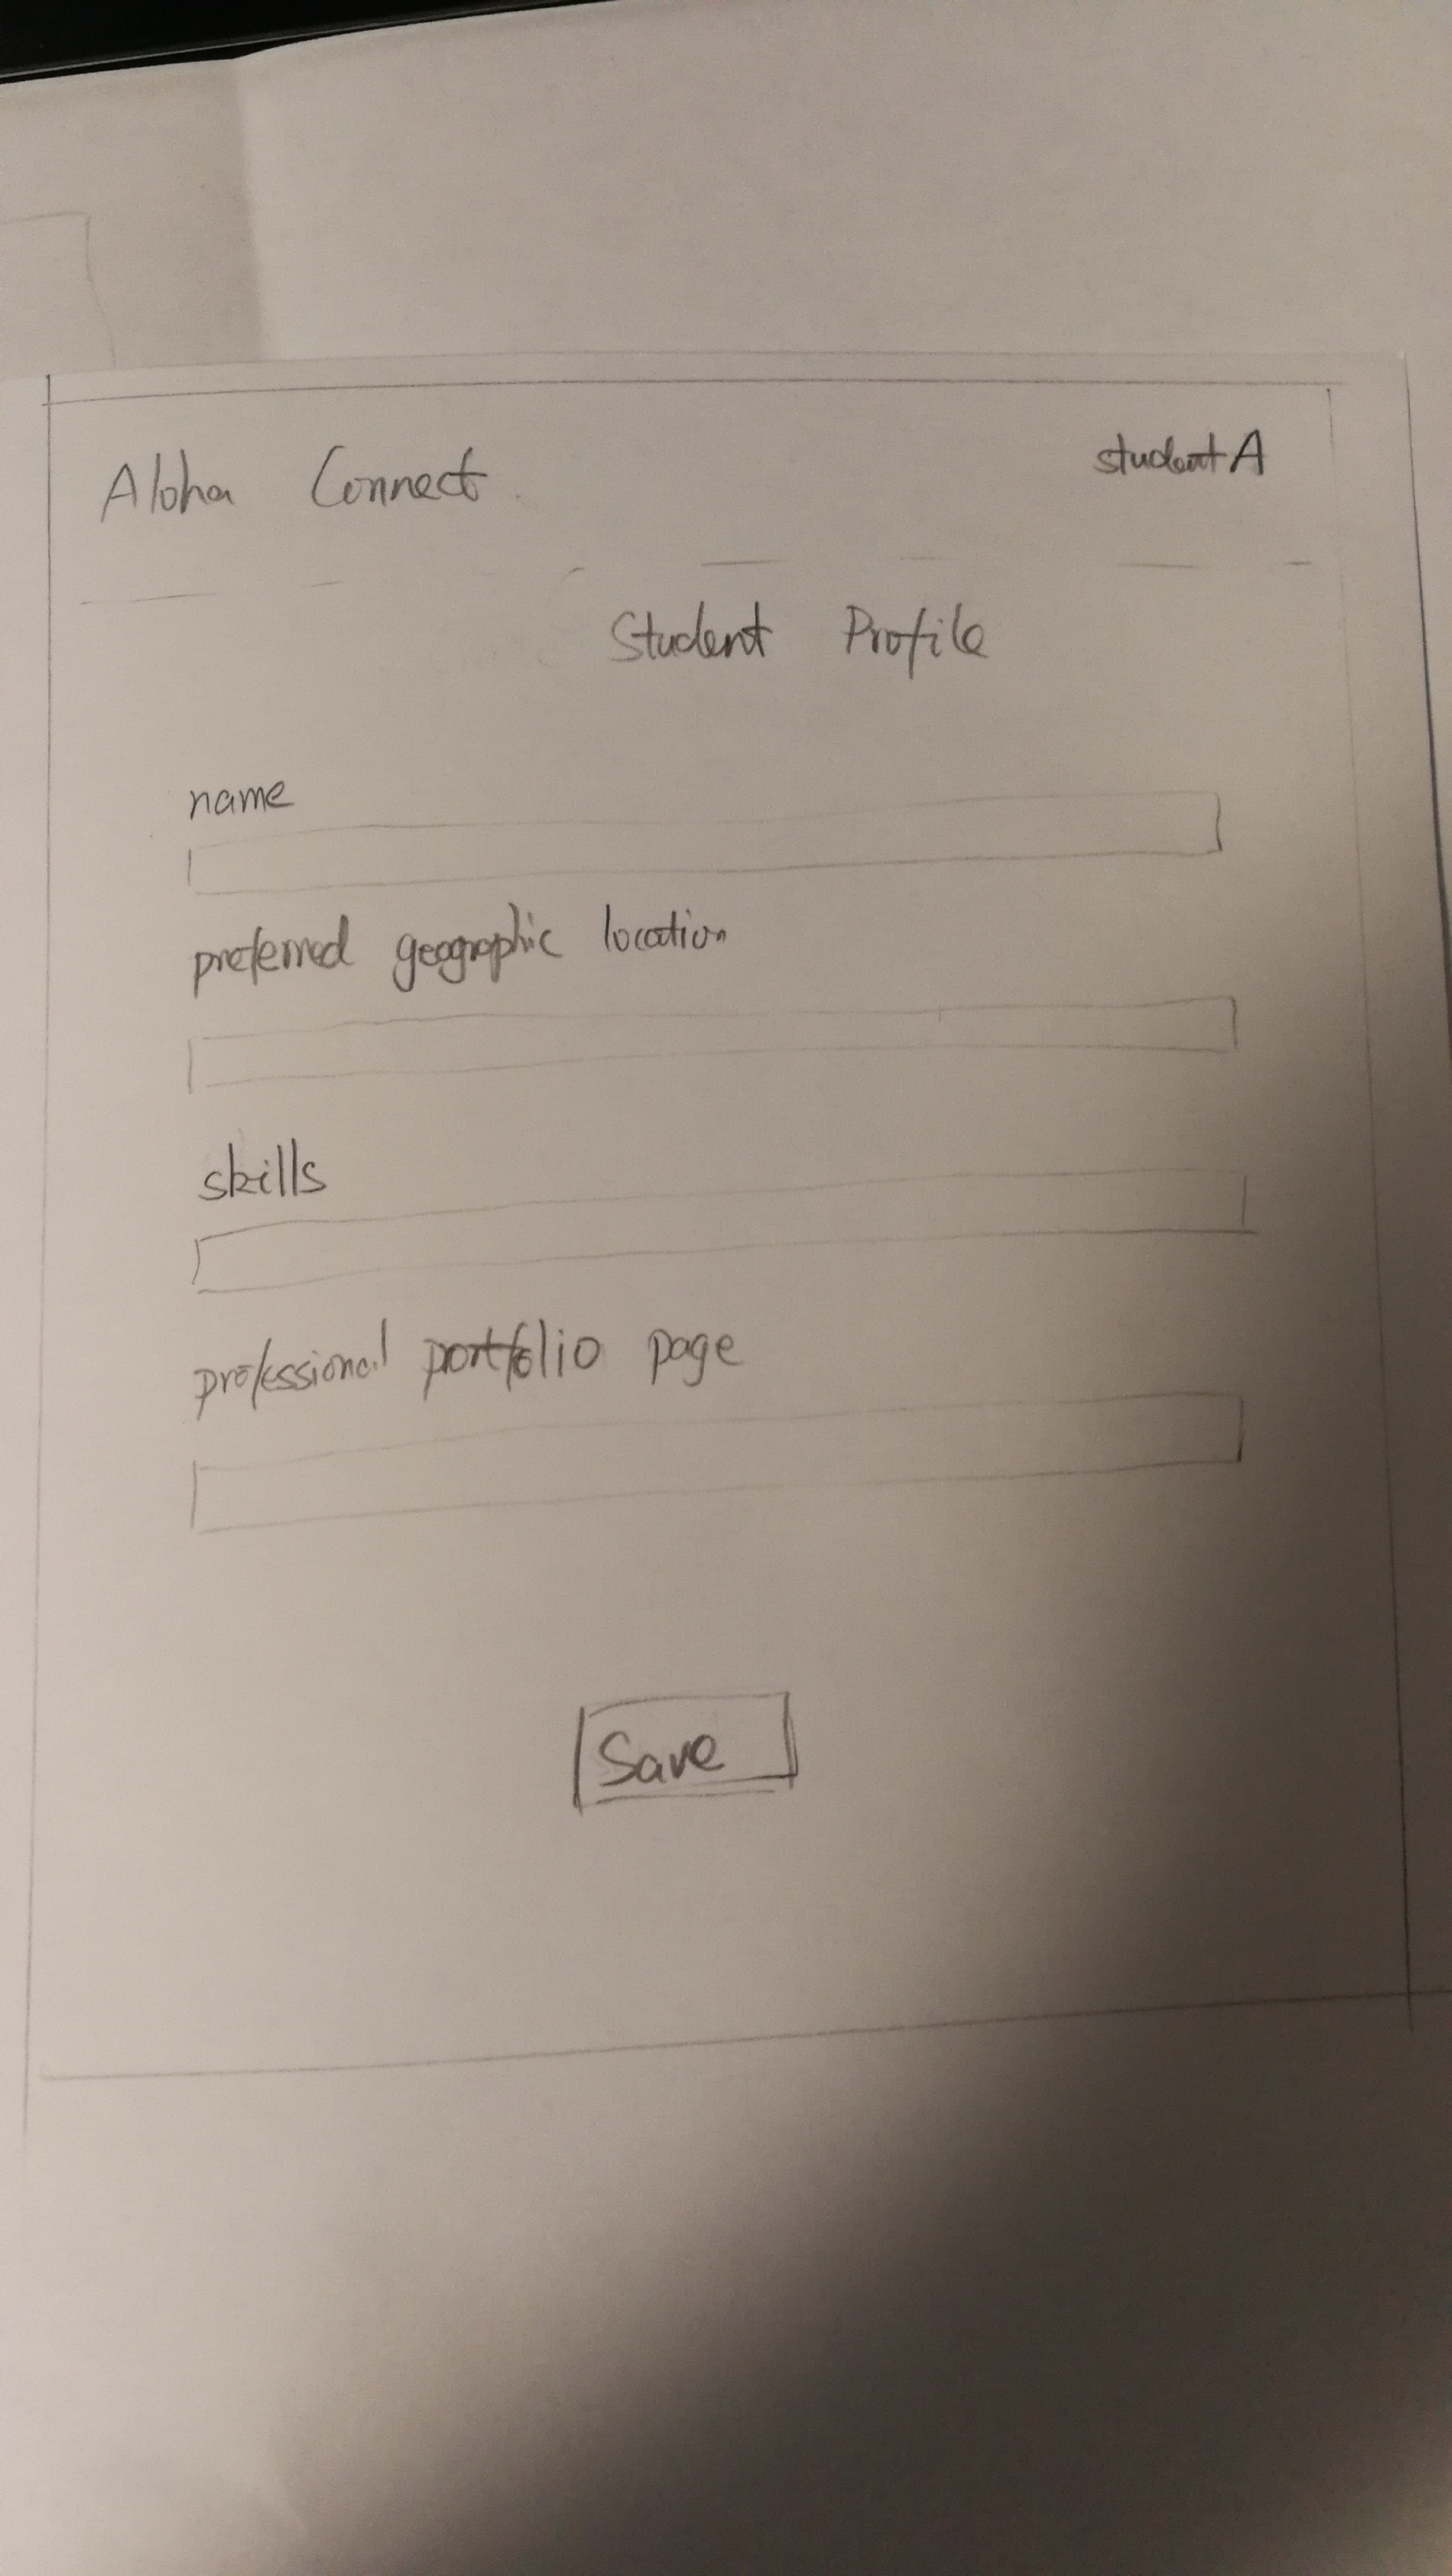 Aloha Connect
studentA
Student Profile
name
preferred geographic location
skills
professional portfolio page
Save